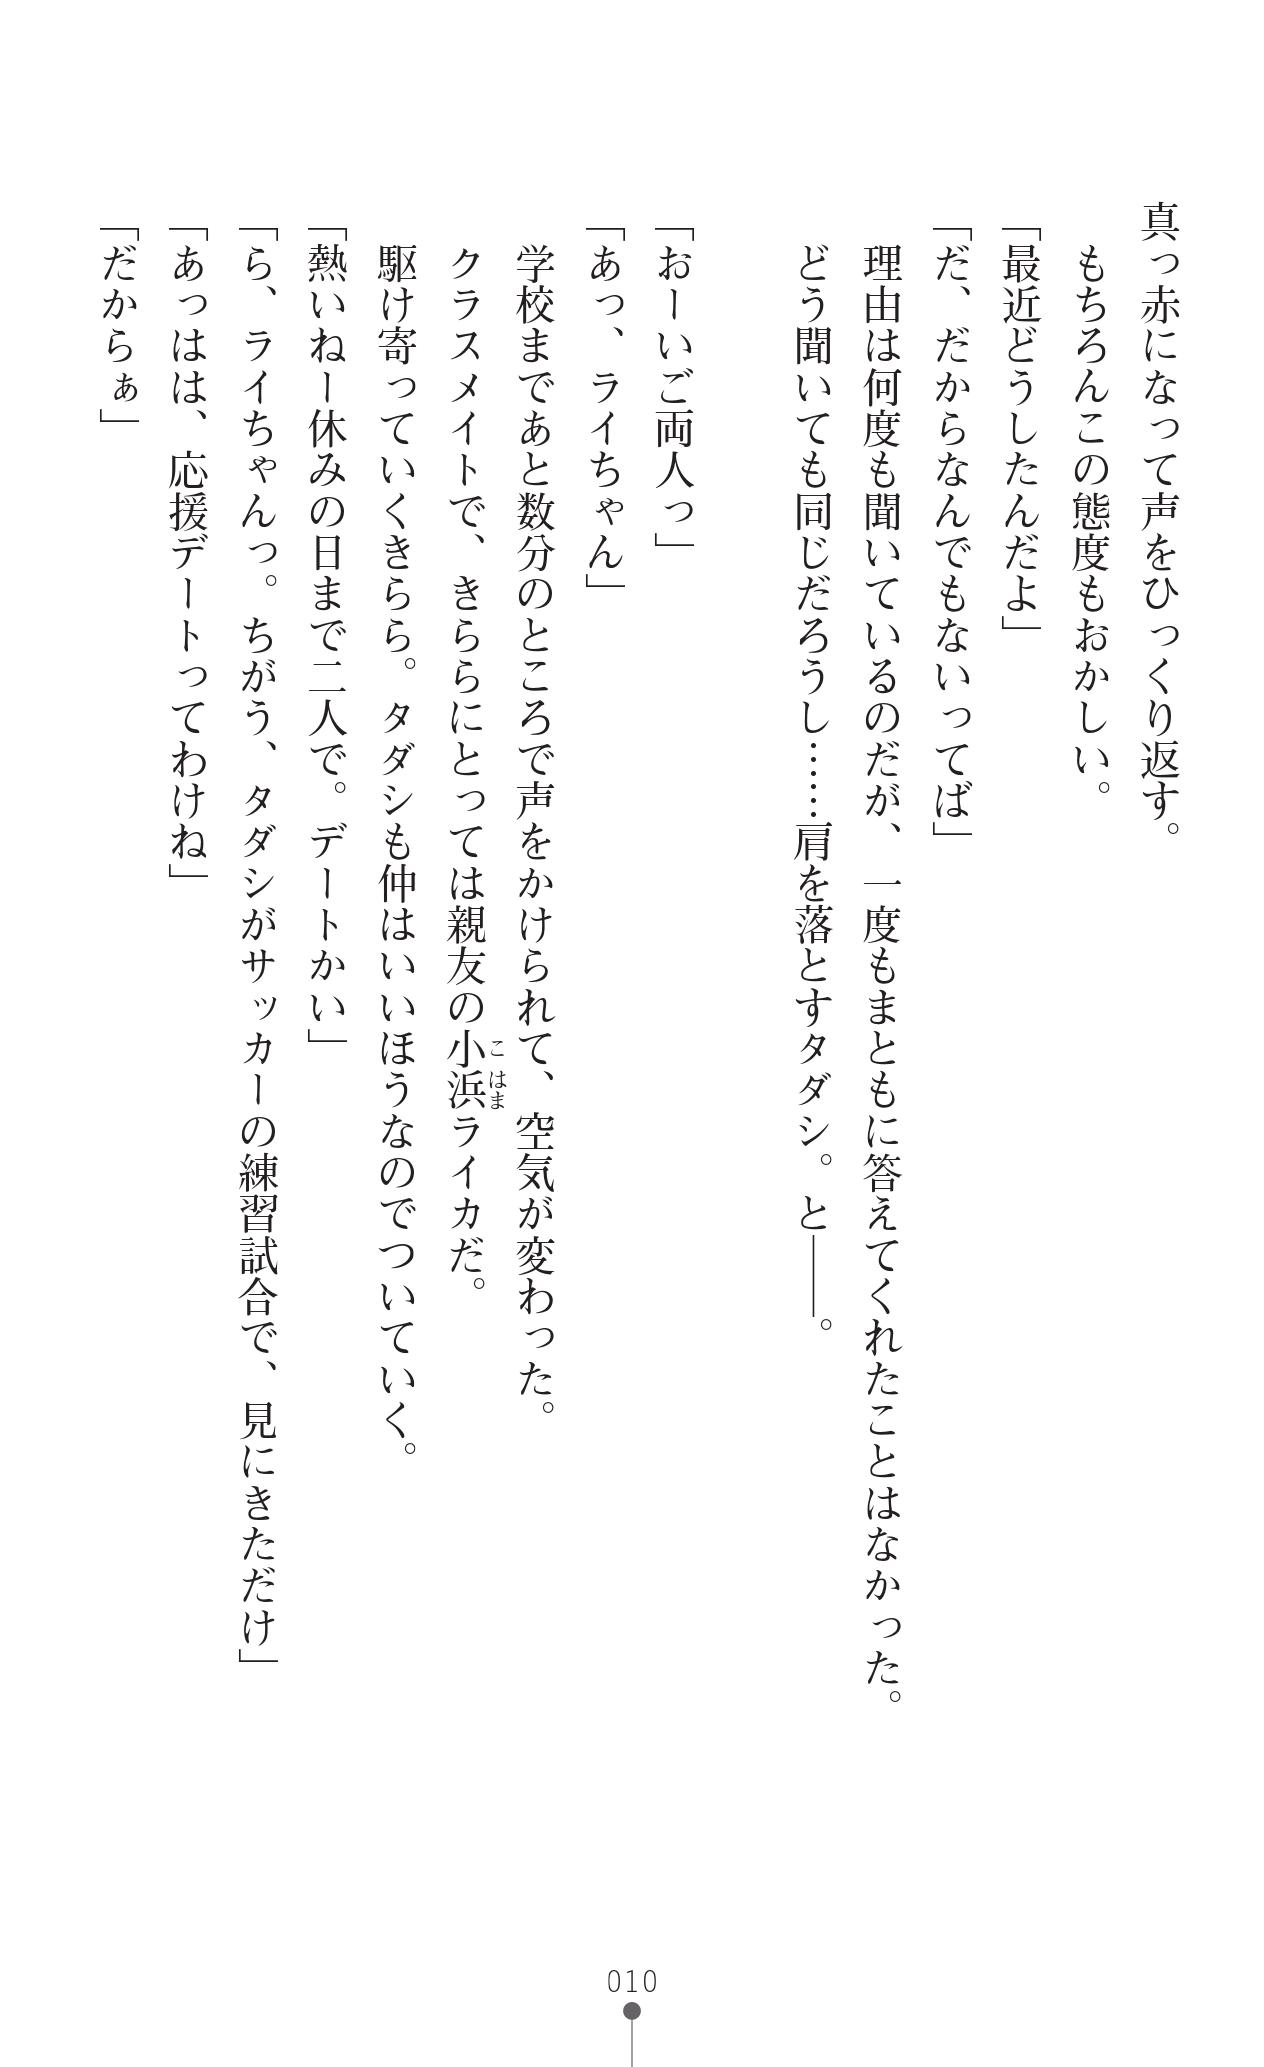 真っ赤になって声をひっくり返す。
もちろんこの態度もおかしい。
「最近どうしたんだよ」
「だ、だからなんでもないってば」
理由は何度も聞いているのだが、一度もまともに答えてくれたことはなかった。
どう聞いても同じだろうし……肩を落とすタダシ。と――。
「おーいご両人っ」
「あっ、ライちゃん」
学校まであと数分のところで声をかけられて、空気が変わった。
クラスメイトで、きららにとっては親友の小浜ライカだ。
こはま
駆け寄っていくきらら。タダシも仲はいいほうなのでついていく。
「熱いねー休みの日まで二人で。デートかい」
「ら、ライちゃんっ。ちがう、タダシがサッカーの練習試合で、見にきただけ」
「あっはは、応援デートってわけね」
「だからぁ」
010